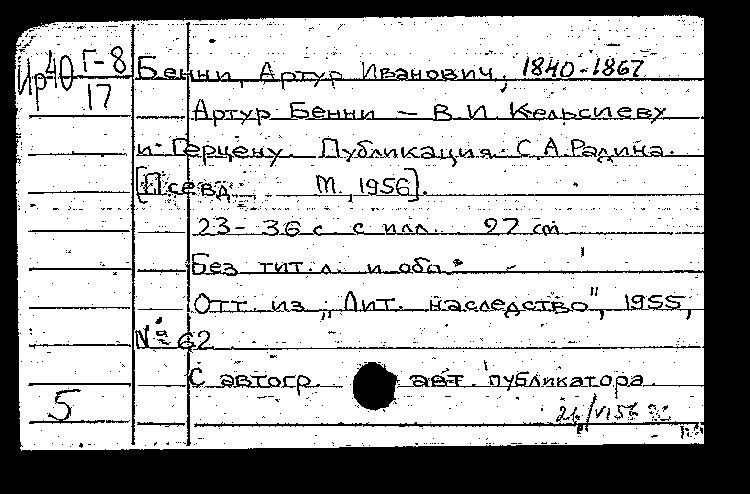 Ир40 Г-8
17
Бенни, Артур Иванович, 1840-1867
Артур Бенни — В.И. Кельсиеву
и Герцену. Публикация С.А. Радина.
[Псевд. М., 1956].
23-36 с. с илл. 27 cm
Без тит. л. и обл.
Отт. из „Лит. наследство", 1955,
№ 62
С автогр. авт. публикатора.
5